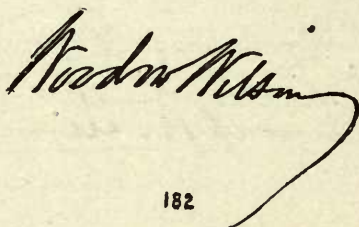 Woodrow Wilson
182